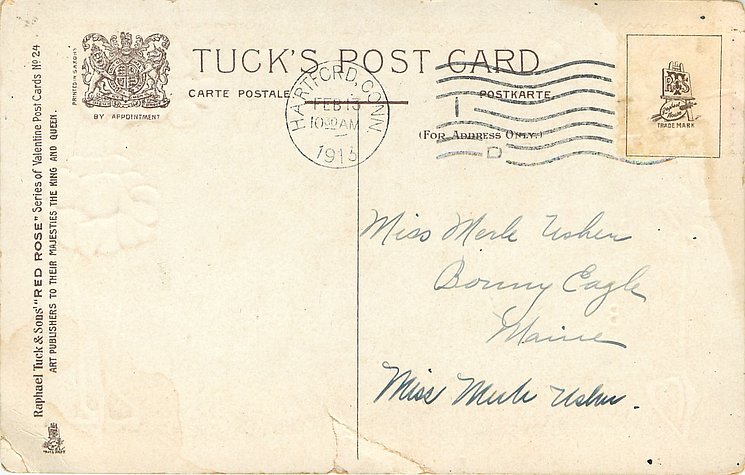 TUCK'S POST CARD
CARTE POSTALE
POSTKARTE
(FOR ADDRESS ONLY.)
BY APPOINTMENT
PRINTED IN SAXONY
HARTFORD, CONN
FEB 13
10 30 AM
1913
I
D
TRADE MARK
Raphael Tuck & Sons' "RED ROSE" Series of Valentine Post Cards No 24
ART PUBLISHERS TO THEIR MAJESTIES THE KING AND QUEEN.
Miss Merle Usher
Bonny Eagle
Maine
Miss Merle Usher.